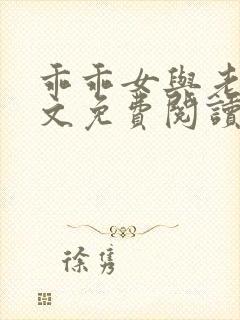 乖乖女與老
文免費閱讀
徐雋